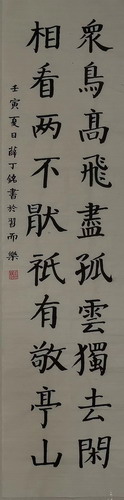 衆鳥高飛盡孤雲獨去閑
相看两不猒衹有敬亭山
壬寅夏日薛丁銘書於習而樂